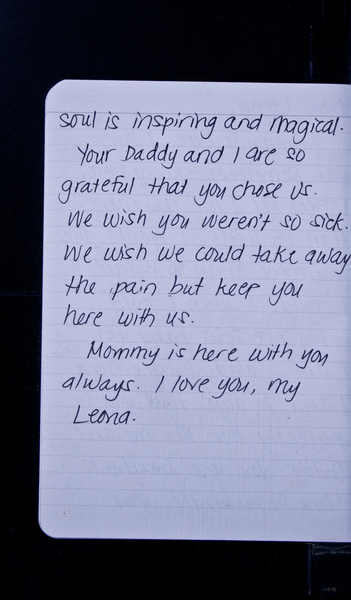 soul is inspiring and magical.
Your Daddy and I are so
grateful that you chose us.
We wish you weren't so sick.
We wish we could take away
the pain but keep you
here with us.
Mommy is here with you
always. I love you, my
Leona.